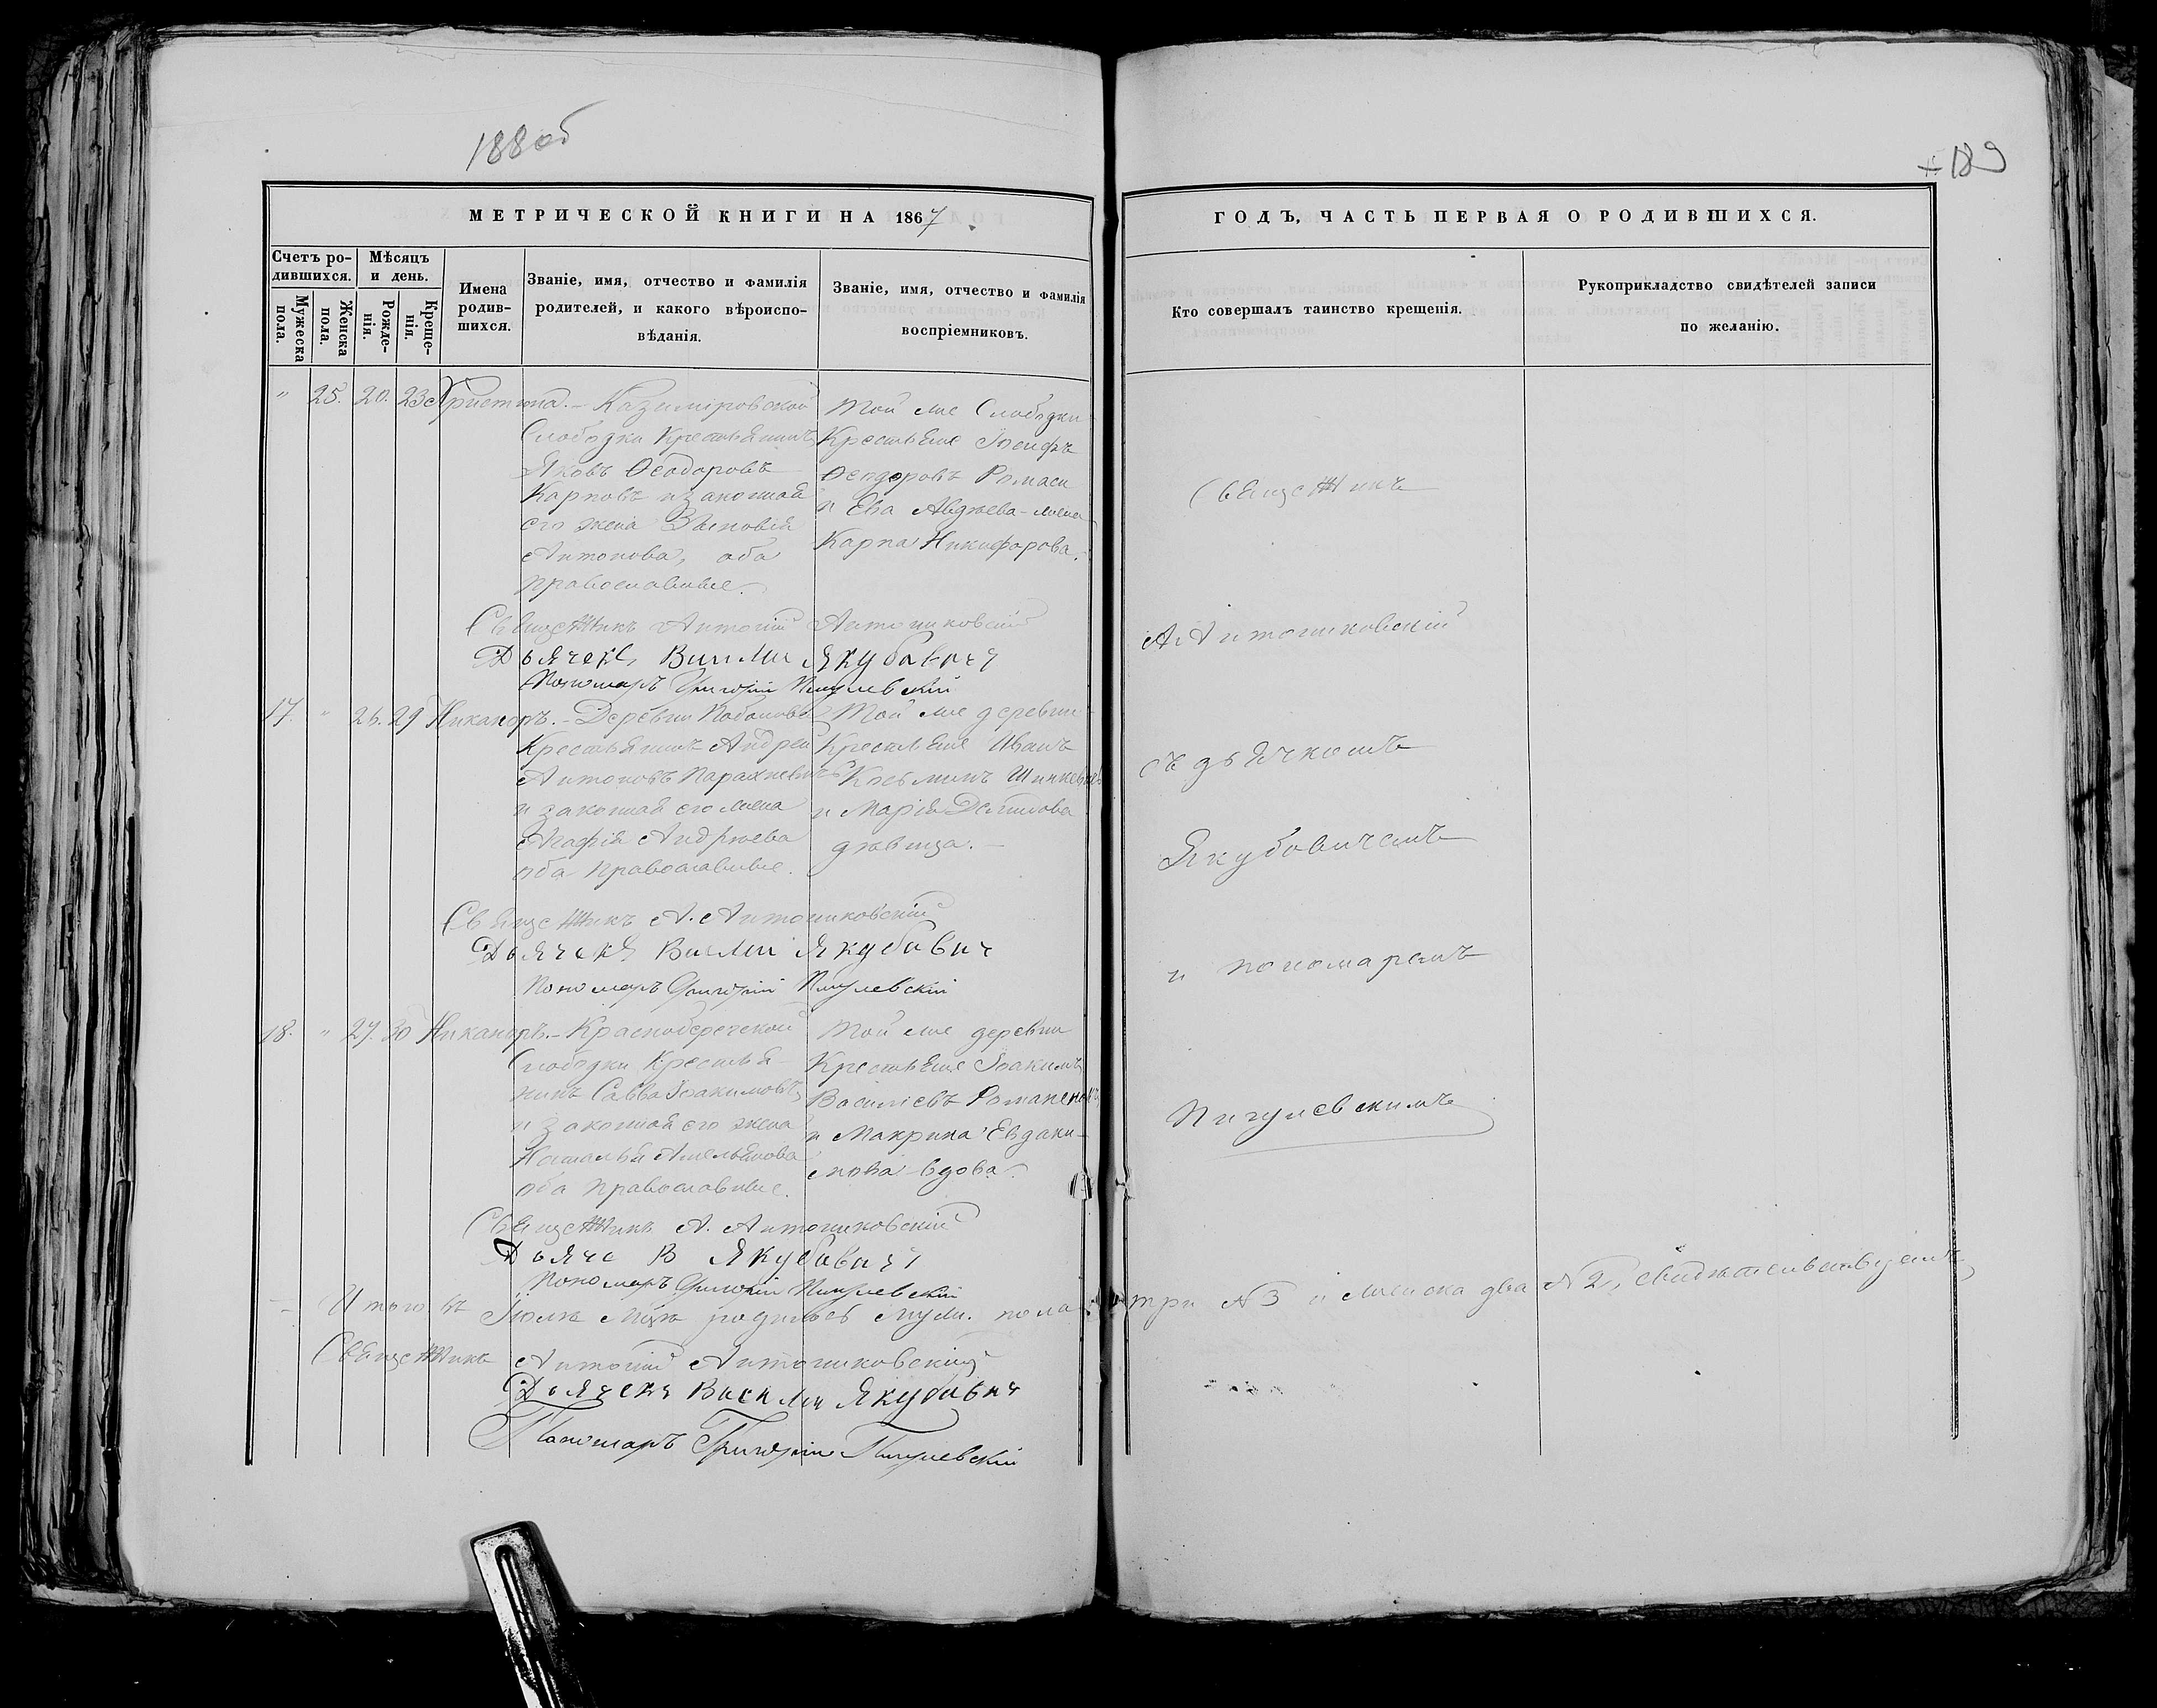 188 об
189
МЕТРИЧЕСКОЙ КНИГИ НА 1867
ГОДЪ, ЧАСТЬ ПЕРВАЯ О РОДИВШИХСЯ.
Счетъ ро-
дившихся.
Мужеска
пола.
Женска
пола.
Мѣсяцъ
и день.
Рожде-
нія.
Креще-
нія.
Имена
родив-
шихся.
Званіе, имя, отчество и фамилія
родителей, и какого вѣроиспо-
вѣданія.
Званіе, имя, отчество и фамилія
воспріемниковъ.
Кто совершалъ таинство крещенія.
Рукоприкладство свидѣтелей записи
по желанію.
" 25. 20. 23 Христина. – Казиміровской
Слободки Крестьянинъ
Яковъ Ѳеодоровъ
Карповъ и законная
его жена Зиновія
Антонова, оба
православные.
Той же Слободки
Крестьяне Іосифъ
Ѳеодоровъ
и Ева Авдѣева – жена
Карпа Никифорова.
Священникъ Антоній Антониковскій
Дьячекъ Василій Якубовичъ
Пономарь Григорій Пигулевскій
17. " 26. 29 Никаноръ. – Деревни
Крестьянинъ Андрей
Антоновъ Парахневичъ
и законная его жена
Агафія Андреева
оба православные.
Той же деревни
Крестьяне Иванъ
Козьминъ Шинкевичъ
и Марія
дѣвица. –
Священникъ А. Антониковскій
Дьячекъ Василій Якубович
Пономарь Григорій Пигулевскій
18. " 27. 30 Никаноръ. – Краснобережской
Слободки Крестья-
нинъ Савва Іоакимовъ
и законная его жена
Наталья Амельянова
оба православные.
Той же деревни
Крестьяне Іоакимъ
Василіевъ Романенокъ
и Макрина Евдоки-
мова вдова
Священникъ А. Антониковскій
Дьяче В Якубовичъ
Пономарь Григорій Пигулевскій
Священникъ
А. Антониковскій
съ дьячкомъ
Якубовичемъ
и пономаремъ
Пигулевскимъ
Итого въ Іюлѣ м-цѣ родилось муж. пола три № 3 и женска два № 2, свидѣтельствуемъ
Священникъ Антоній Антониковскій
Дьячекъ Василій Якубович
Пономарь Григорій Пигулевскій